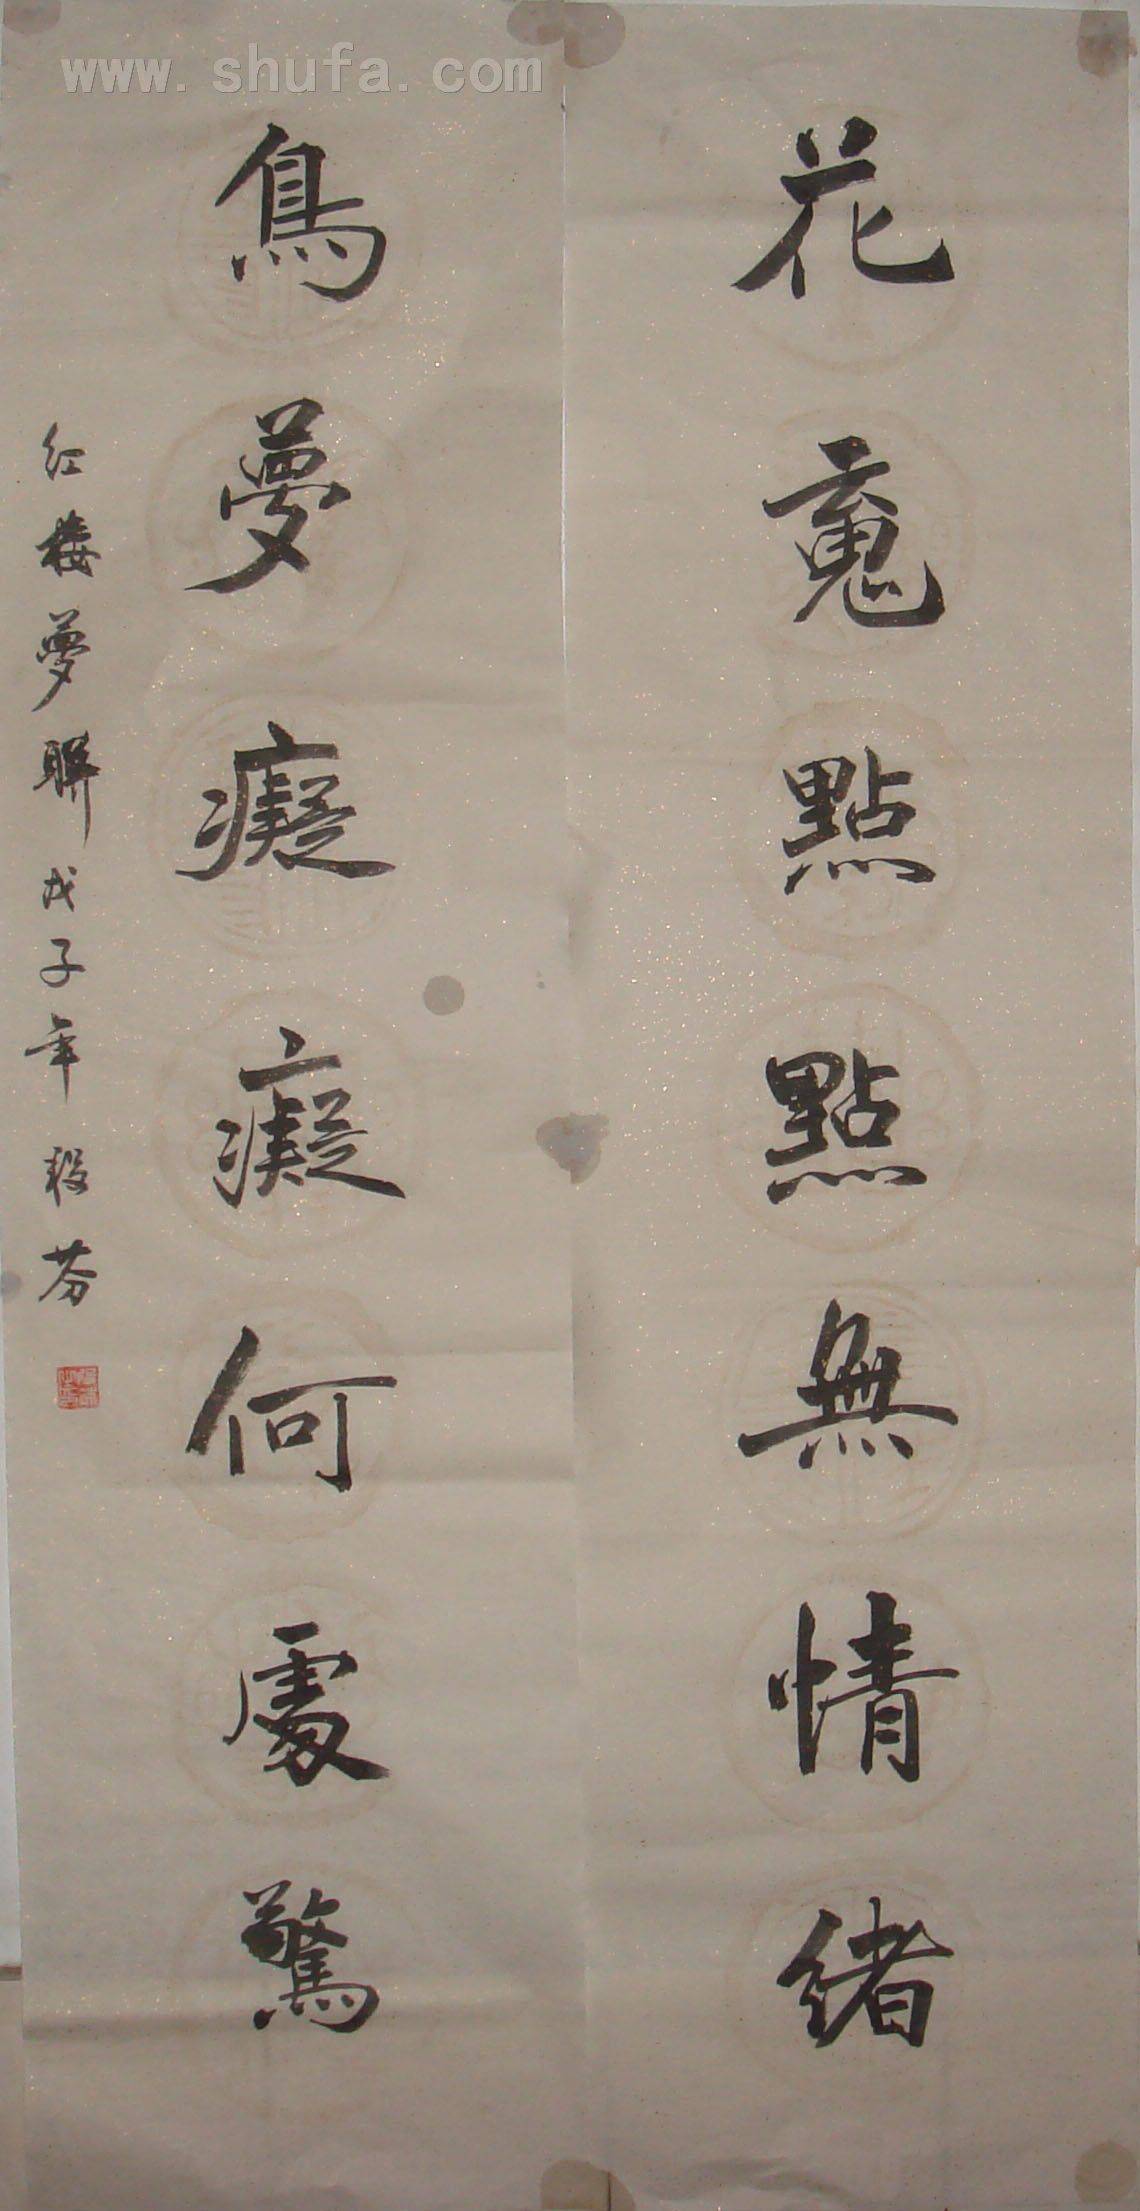 www.shufa.com
花䰟點點無情緒
鳥夢癡癡何處驚
红楼夢聯 戊子年 毅芬